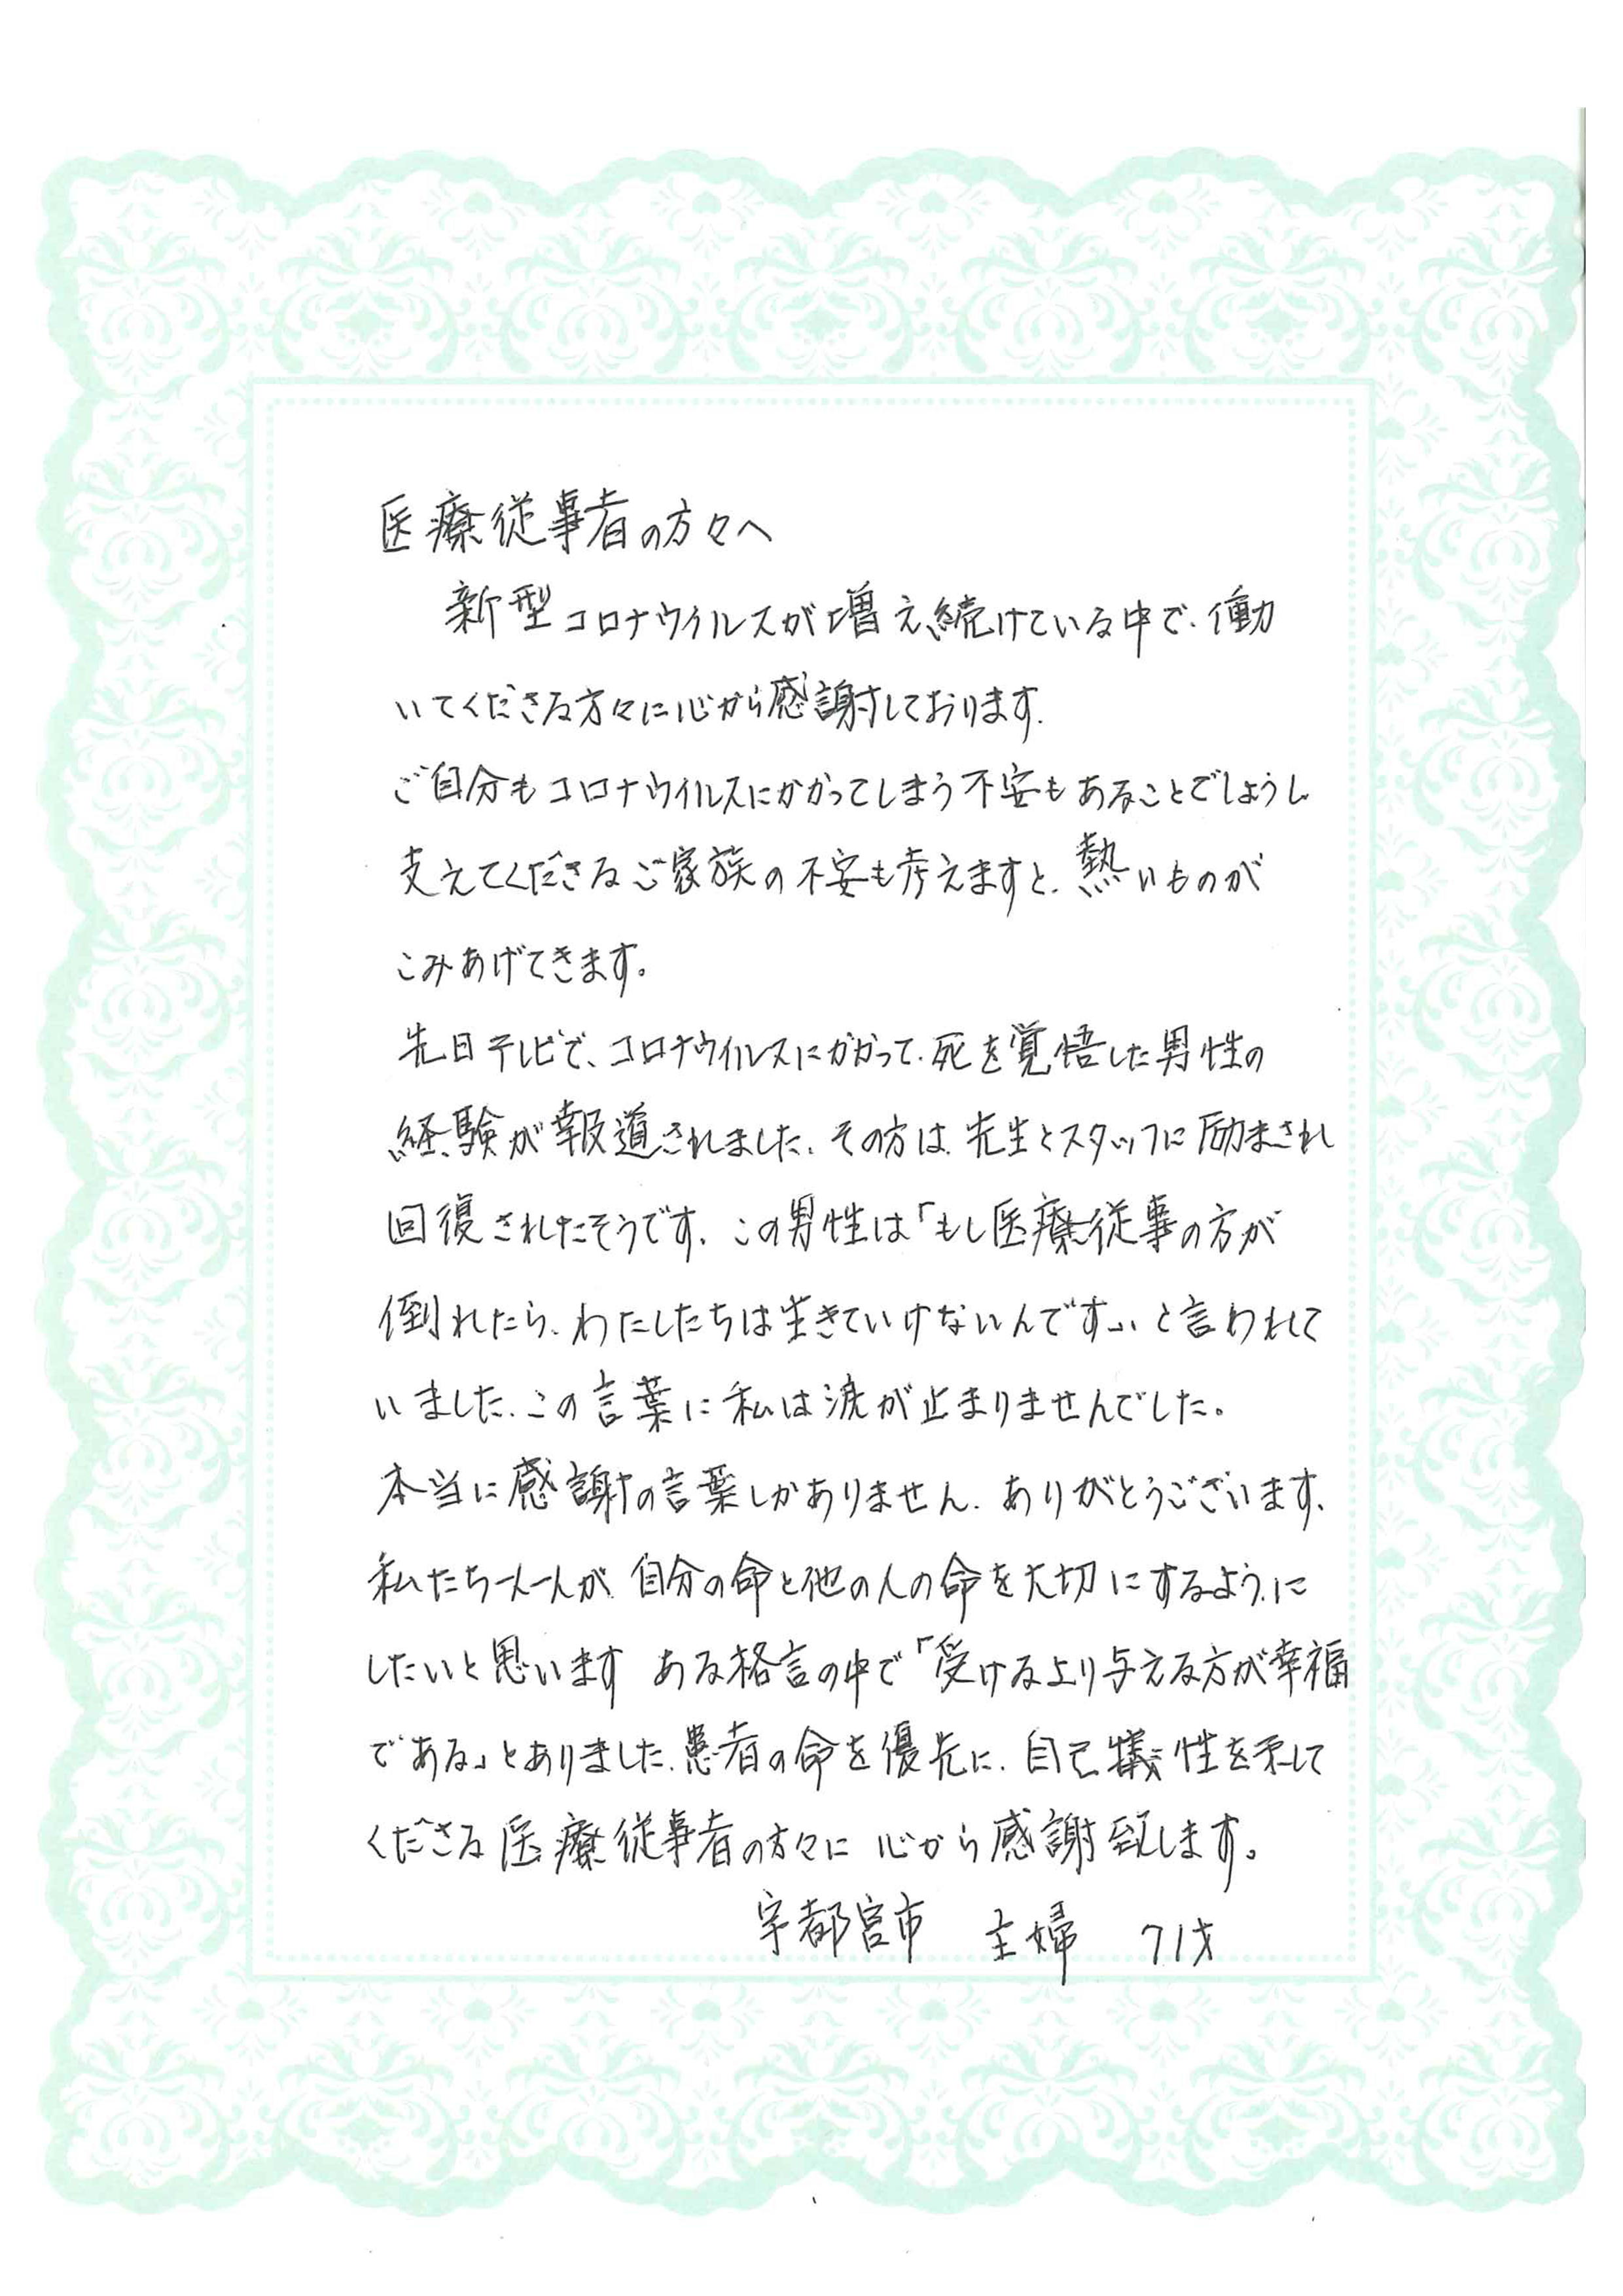 医療従事者の方々へ
新型コロナウイルスが増え続けている中で、働
いてくださる方々に心から感謝しております。
ご自分もコロナウイルスにかかってしまう不安もあることでしょうし
支えてくださるご家族の不安も考えますと、熱いものが
こみあげてきます。
先日テレビで、コロナウイルスにかかって、死を覚悟した男性の
経験が報道されました。その方は、先生とスタッフに励まされ
回復されたそうです。この男性は「もし医療従事の方が
倒れたら、わたしたちは生きていけないんです」、と言われて
いました。この言葉に私は涙が止まりませんでした。
本当に感謝の言葉しかありません。ありがとうございます。
私たち一人一人が、自分の命と他の人の命を大切にするように
したいと思います ある格言の中で「受けるより与える方が幸福
である」とありました。患者の命を優先に、自己犠性を示して
くださる医療従事者の方々に 心から感謝致します。
宇都宮市 主婦 71才